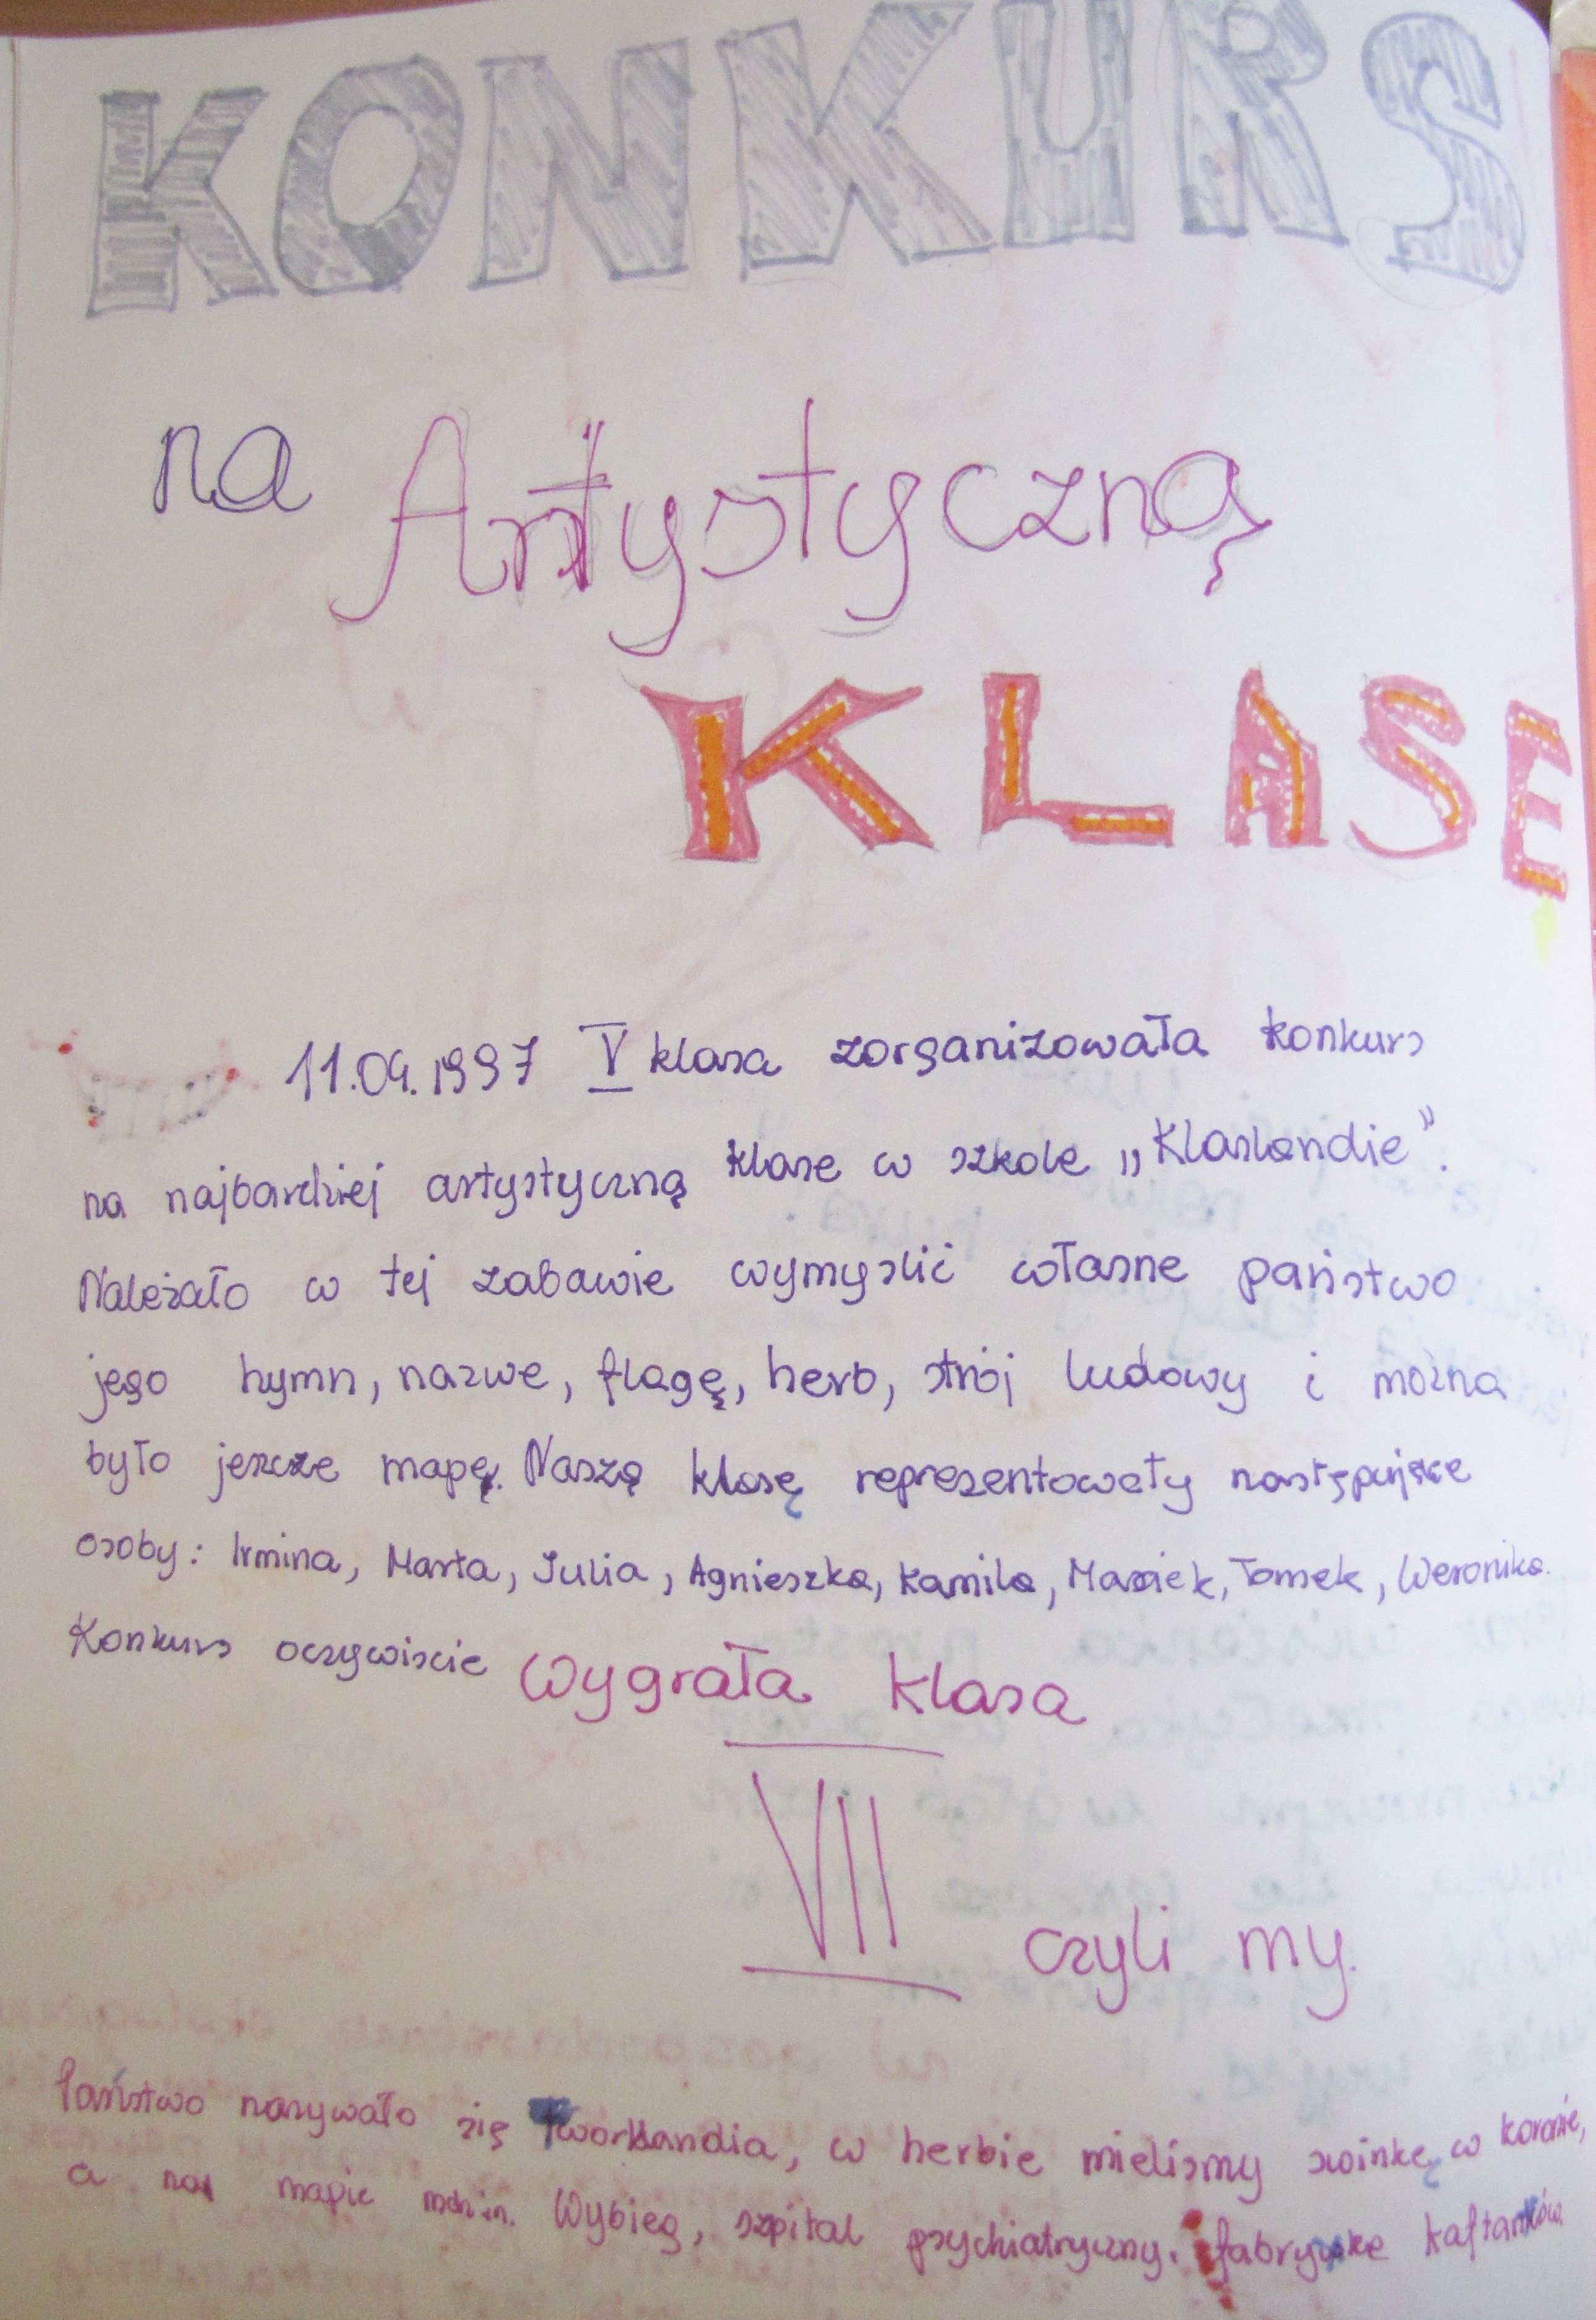 KONKURS
na Artystyczną
KLASĘ
11.04.1997 V klasa zorganizowała konkurs
na najbardziej artystyczną klase w szkole „Klaslandie”.
Należało w tej zabawie wymyslić własne państwo
jego hymn, nazwe, flagę, herb, strój ludowy i można
było jeszcze mapę. Naszą klasę reprezentowały następujące
osoby: Irmina, Marta, Julia, Agnieszka, Kamila, Maciek, Tomek, Weronika.
Konkurs oczywiscie wygrała klasa
VII czyli my.
Państwo nazywało się Tworklandia, w herbie mielismy swinkę w koronie,
a na mapie m.in. Wybieg, szpital psychiatryczny, fabryke kaftanków.